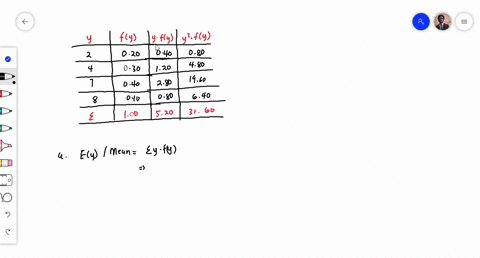 y f(y) y·f(y) y²·f(y)
2 0.20 0.40 0.80
4 0.30 1.20 4.80
7 0.40 2.80 19.60
8 0.10 0.80 6.40
Σ 1.00 5.20 31.60
a. E(y) / Mean = Σy·f(y)
⇒